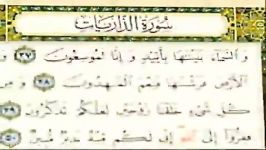 سورة الذاريات
والسماء بنينها بأييد وإنا لموسعون ٤٧
الأرض فرشنها فنعم المهدون ٤٨ ومن
كل شيء خلقنا زوجين لعلكم تذكرون ٤٩
ففروا إلى الله إني لكم منه نذير مبين ٥٠